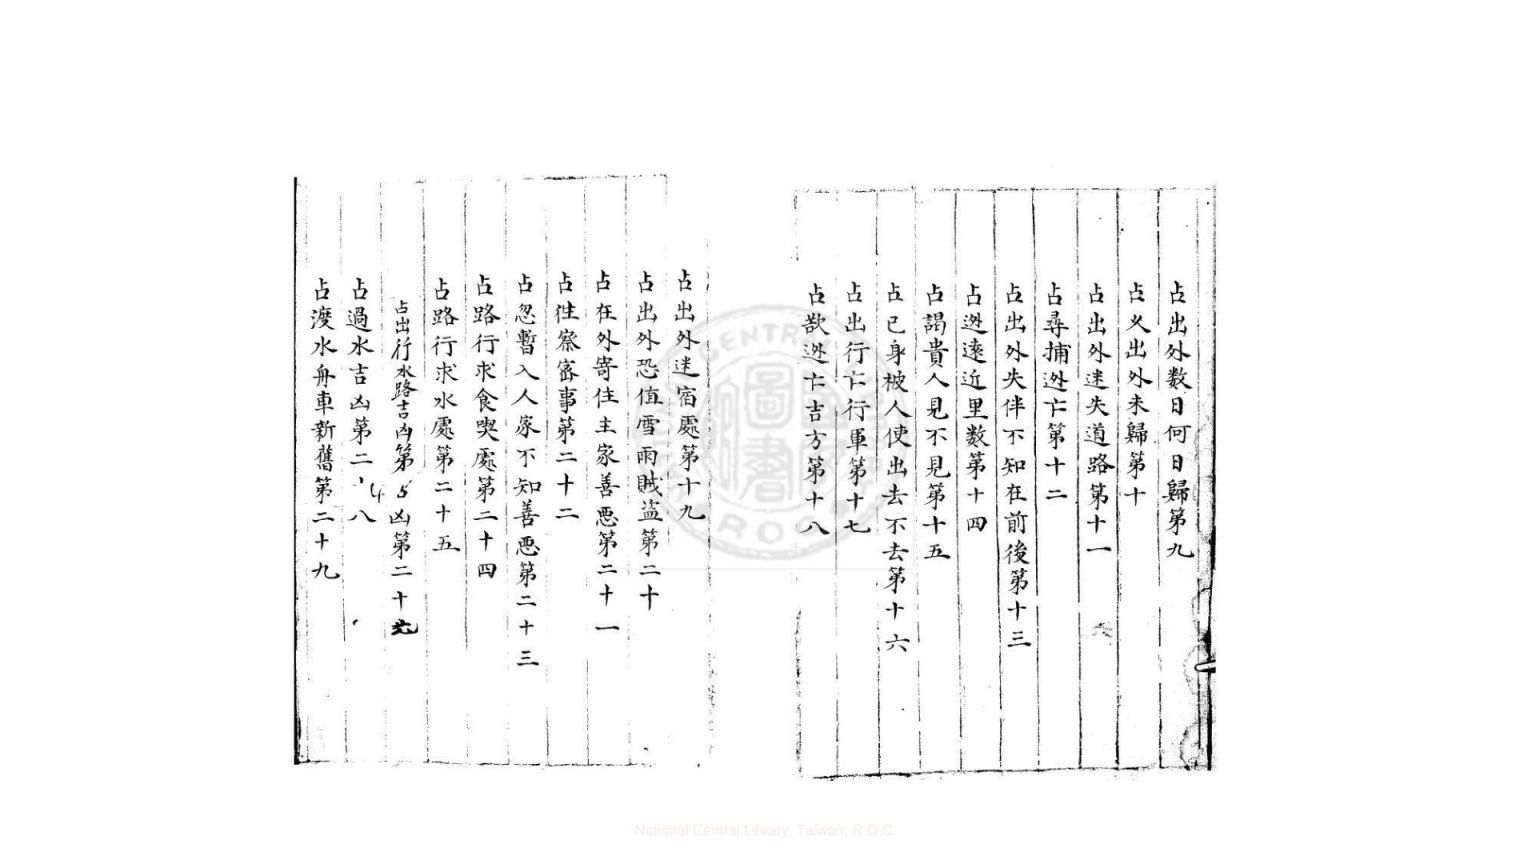 占出外数日何日歸第九
占乂出外未歸第十
占出外迷失道路第十一
占尋捕迯亡第十二
占出外失伴不知在前後第十三
占迯遠近里数第十四
占謁貴人見不見第十五
占已身被人使出去不去第十六
占出行亡行軍第十七
占欲迯亡吉方第十八
占出外迷宿處第十九
占出外恐值雪雨賊盗第二十
占在外寄住主家善悪第二十一
占徃察密事第二十二
占忽暫入人家不知善悪第二十三
占路行求食喫處第二十四
占路行求水處第二十五
占出行水路吉凶第 凶第二十
占過水吉凶第二 八
占渡水舟車新舊第二十九
National Central Library, Taiwan, R.O.C.